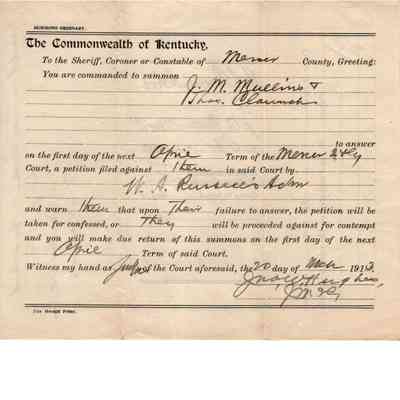 SUMMONS ORDINARY.
The Commonwealth of Kentucky,
To the Sheriff, Coroner or Constable of Mercer County, Greeting:
You are commanded to summon J. M. Mullins &
Thos.
to answer
on the first day of the next April Term of the Mercer
Court, a petition filed against them in said Court by
W. A. Russell's Adm
and warn them that upon Their failure to answer, the petition will be
taken for confessed, or They will be proceeded against for contempt
and you will make due return of this summons on the first day of the next
April Term of said Court.
Witness my hand as Judge of the Court aforesaid, the 20 day of Mch 1913.
Jno. W. Hughes,
The Herald Print.